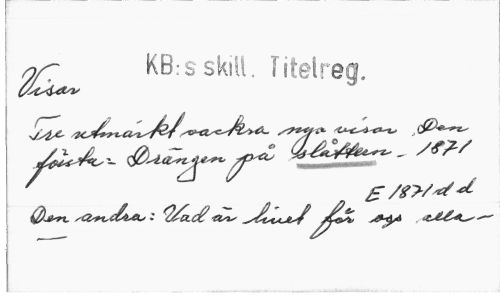 KB:s skill. Titelreg.
Visor
Tre utmärkt vackra nya visor. Den
första: Drängen på slåttern. 1871
E 1871 d d
Den andra: Vad är livet för oss alla-